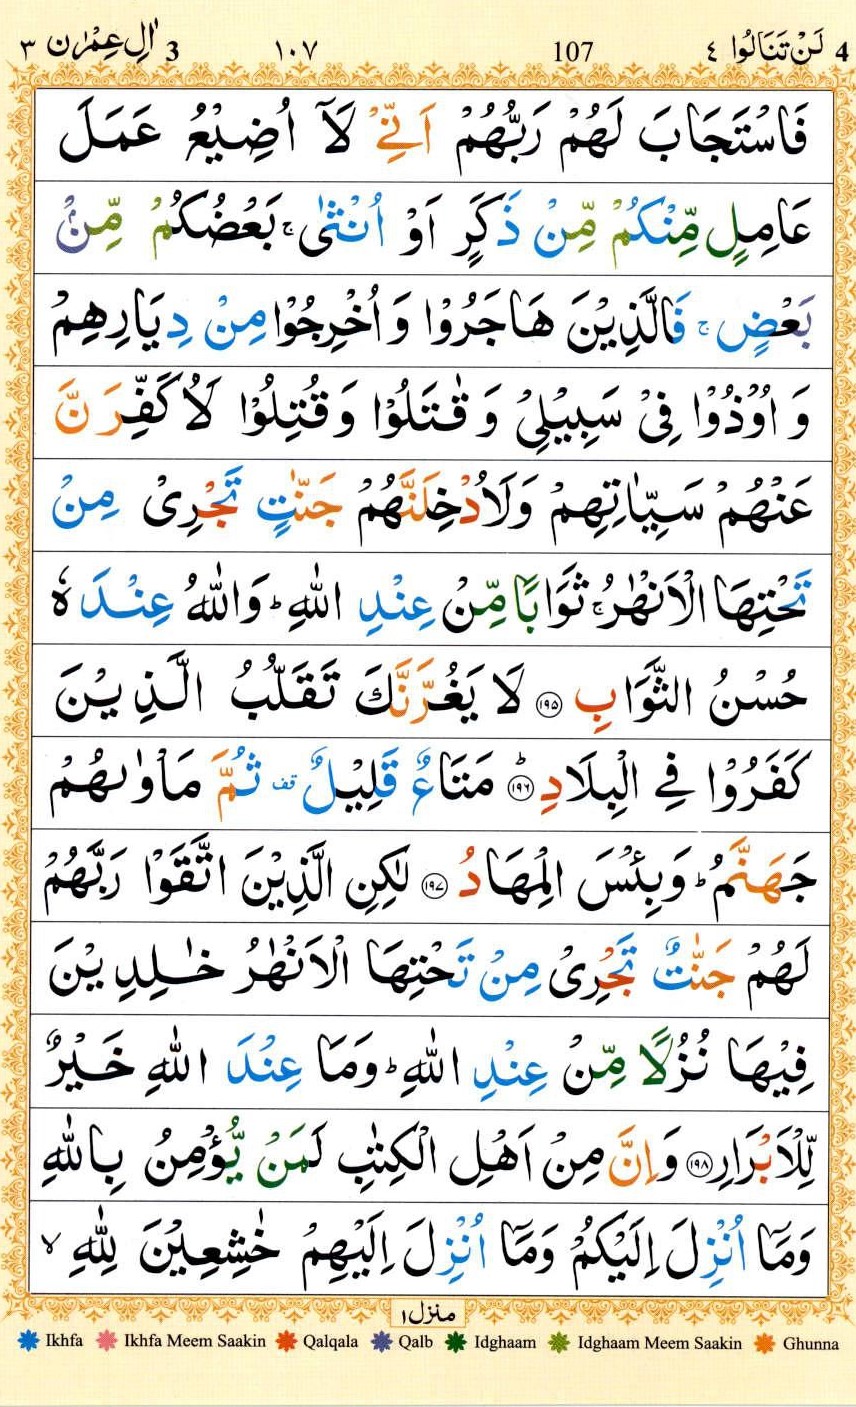 4 لَنْ تَنَالُوا ٤ 107 ١٠٧ 3 اٰلِ عِمْرٰن ٣
فَاسْتَجَابَ لَهُمْ رَبُّهُمْ اَنِّیْ لَاۤ اُضِیْعُ عَمَلَ
عَامِلٍ مِّنْكُمْ مِّنْ ذَكَرٍ اَوْ اُنْثٰی ۚ بَعْضُكُمْ مِّنْۢ
بَعْضٍ ۚ فَالَّذِیْنَ هَاجَرُوْا وَ اُخْرِجُوْا مِنْ دِیَارِهِمْ
وَ اُوْذُوْا فِیْ سَبِیْلِیْ وَ قٰتَلُوْا وَ قُتِلُوْا لَاُكَفِّرَنَّ
عَنْهُمْ سَیِّاٰتِهِمْ وَلَاُدْخِلَنَّهُمْ جَنّٰتٍ تَجْرِیْ مِنْ
تَحْتِهَا الْاَنْهٰرُ ۚ ثَوَابًا مِّنْ عِنْدِ اللّٰهِ ؕ وَاللّٰهُ عِنْدَهٗ
حُسْنُ الثَّوَابِ ﴿۱۹۵﴾ لَا یَغُرَّنَّكَ تَقَلُّبُ الَّذِیْنَ
كَفَرُوْا فِی الْبِلَادِ ﴿۱۹۶﴾ؕ مَتَاعٌ قَلِیْلٌ قف ثُمَّ مَاْوٰىهُمْ
جَهَنَّمُ ؕ وَبِئْسَ الْمِهَادُ ﴿۱۹۷﴾ لٰكِنِ الَّذِیْنَ اتَّقَوْا رَبَّهُمْ
لَهُمْ جَنّٰتٌ تَجْرِیْ مِنْ تَحْتِهَا الْاَنْهٰرُ خٰلِدِیْنَ
فِیْهَا نُزُلًا مِّنْ عِنْدِ اللّٰهِ ؕ وَمَا عِنْدَ اللّٰهِ خَیْرٌ
لِّلْاَبْرَارِ ﴿۱۹۸﴾ وَاِنَّ مِنْ اَهْلِ الْكِتٰبِ لَمَنْ یُّؤْمِنُ بِاللّٰهِ
وَمَاۤ اُنْزِلَ اِلَیْكُمْ وَمَاۤ اُنْزِلَ اِلَیْهِمْ خٰشِعِیْنَ لِلّٰهِ ۙ
منزل۱
Ikhfa Ikhfa Meem Saakin Qalqala Qalb Idghaam Idghaam Meem Saakin Ghunna